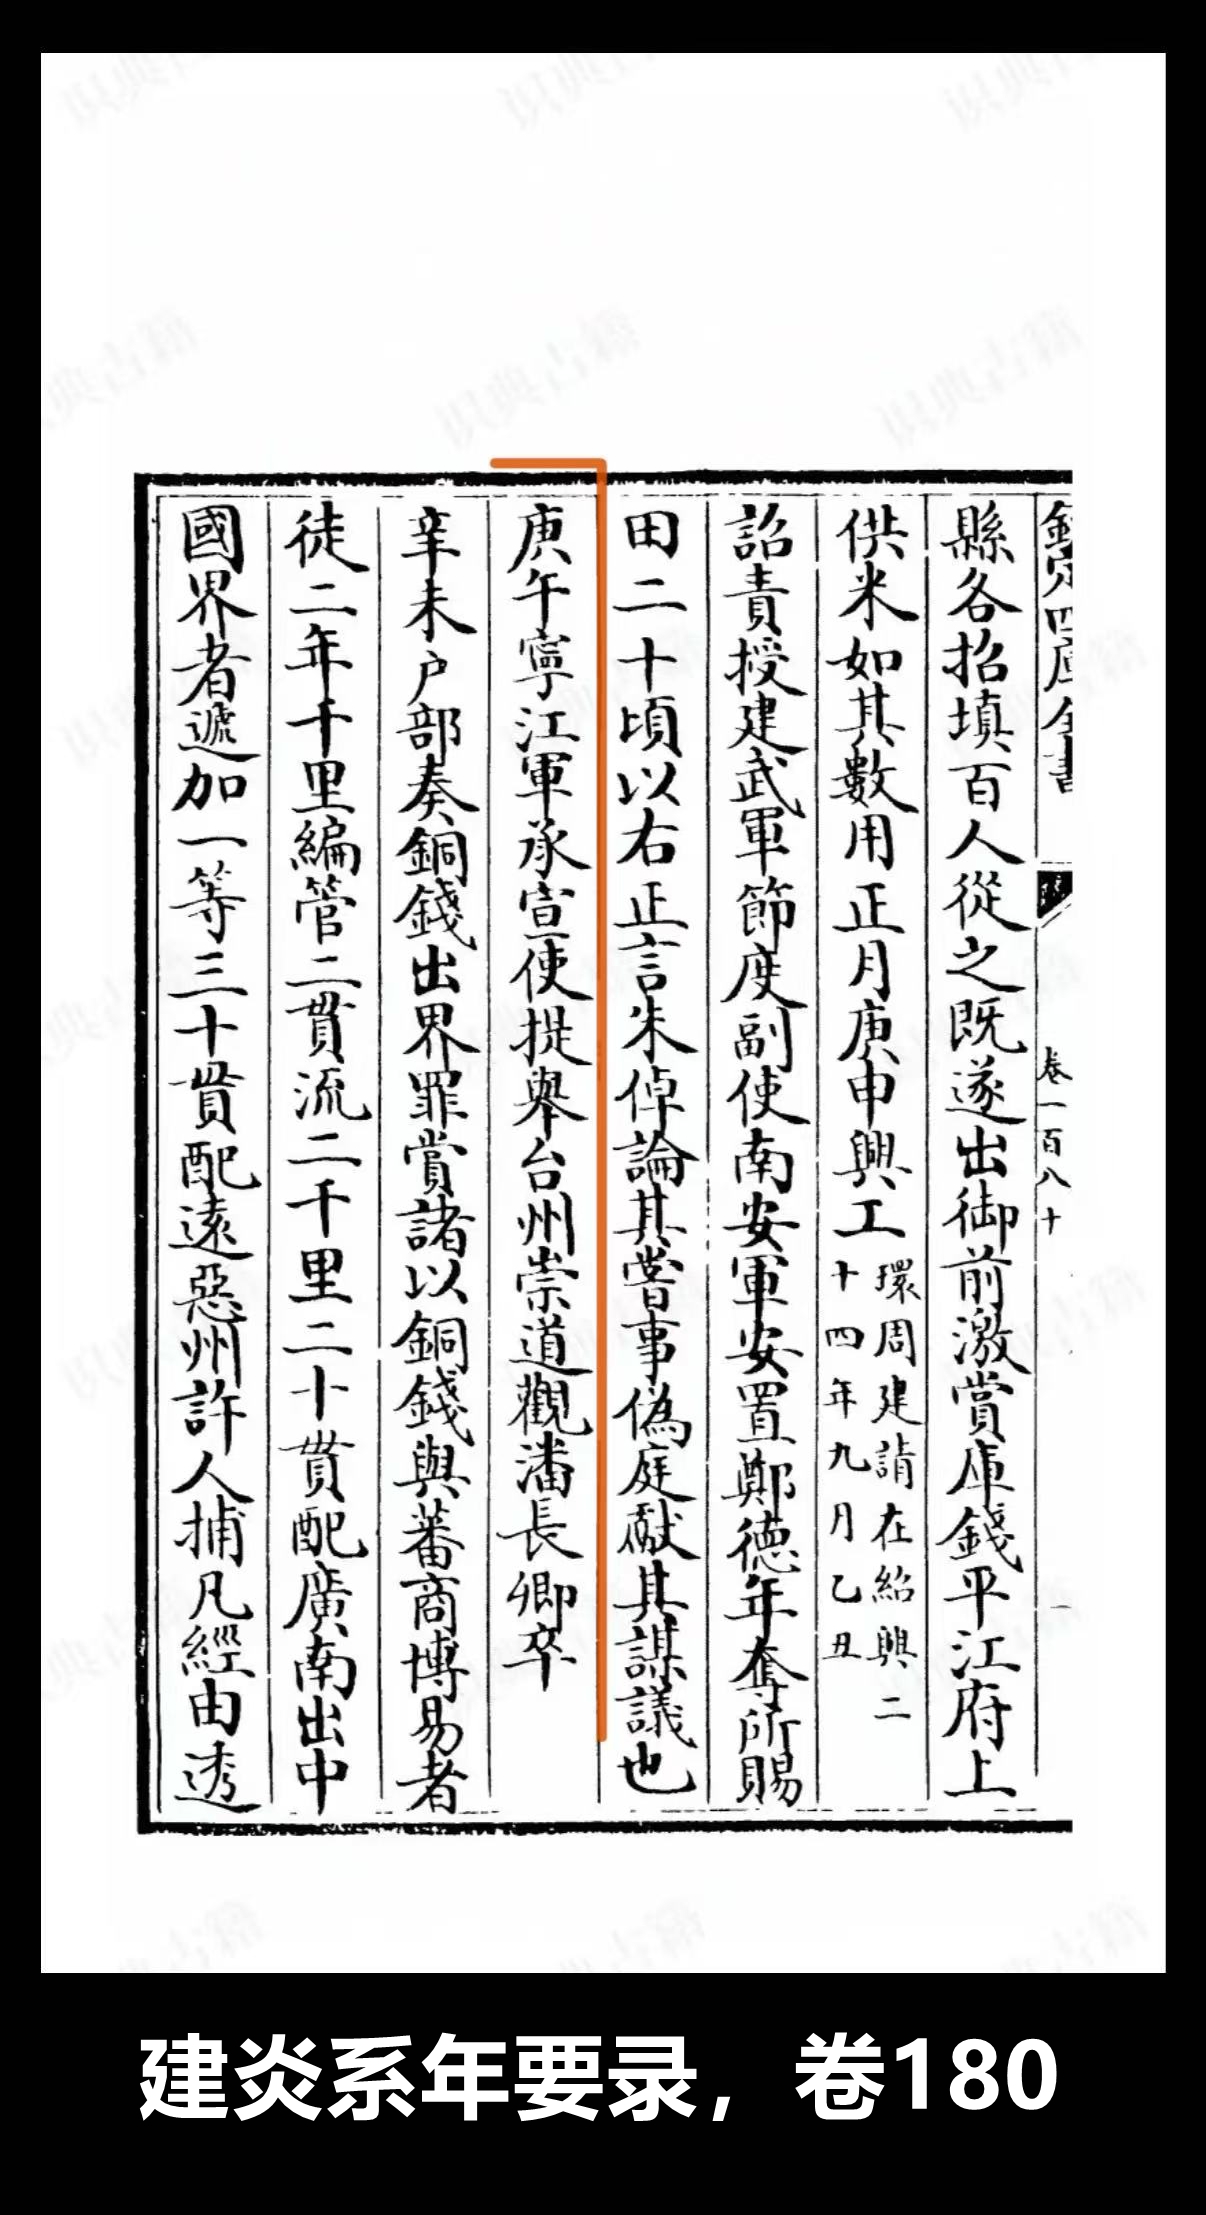 欽定四庫全書 卷一百八十
縣各招填百人從之既遂出御前激賞庫錢平江府上
供米如其數用正月庚申興工環周建請在紹興二十四年九月乙丑
詔責授建武軍節度副使南安軍安置鄭德年奪所賜
田二十頃以右正言朱倬論其嘗事偽庭獻其謀議也
庚午寧江軍承宣使提舉台州崇道觀潘長卿卒
辛未户部奏銅錢出界罪賞諸以銅錢與蕃商博易者
徒二年千里編管二貫流二千里二十貫配廣南出中
國界者遞加一等三十貫配遠惡州許人捕凡經由透
建炎系年要录，卷180
識典古籍